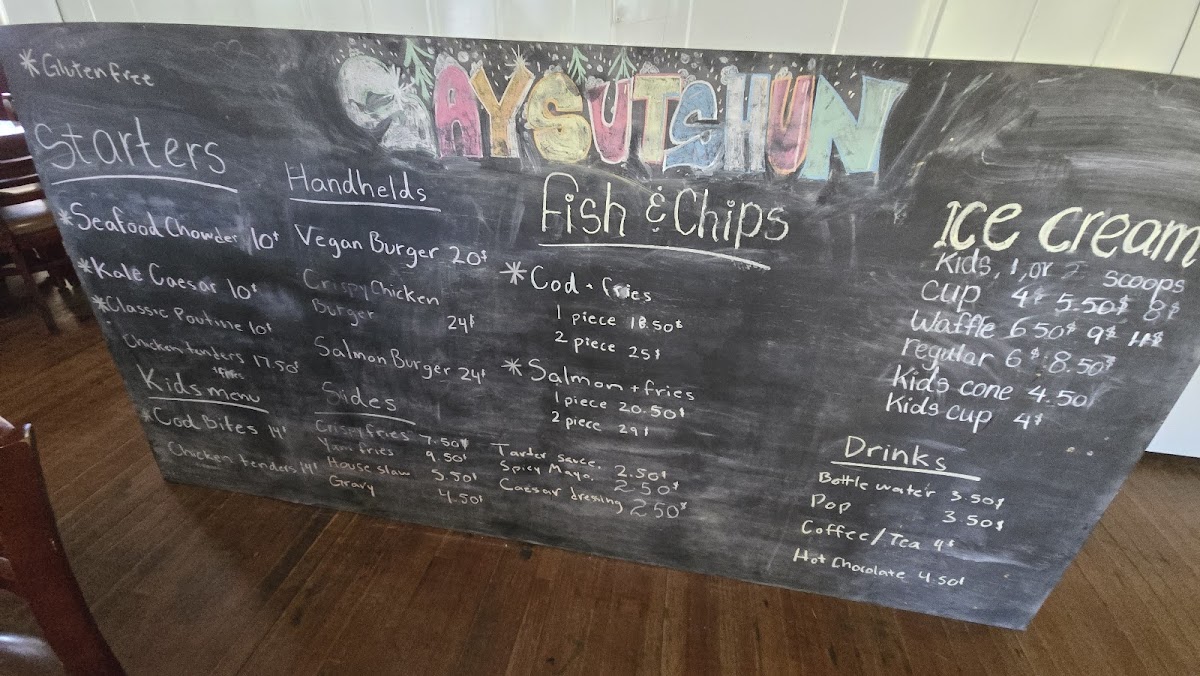 *Gluten free
SAYSUTSHUN
Starters
*Seafood Chowder 10$
*Kale Caesar 10$
*Classic Poutine 10$
Chicken tenders 17.50$
+fries
Kids menu
*Cod Bites 14$
Chicken tenders 14$
Handhelds
Vegan Burger 20$
Crispy Chicken
Burger 24$
Salmon Burger 24$
Sides
Crispy fries 7.50$
Yam fries 9.50$
House slaw 5.50$
Gravy 4.50$
Fish & Chips
*Cod + fries
1 piece 18.50$
2 piece 25$
*Salmon + fries
1 piece 20.50$
2 piece 29$
Tarter sauce. 2.50$
Spicy Mayo. 2.50$
Caesar dressing 2.50$
Ice cream
Kids, 1, or 2 scoops
cup 4$ 5.50$ 8$
Waffle 6.50$ 9$ 11$
regular 6$ 8.50$
Kids cone 4.50$
Kids cup 4$
Drinks
Bottle water 3.50$
Pop 3.50$
Coffee/Tea 4$
Hot Chocolate 4.50$